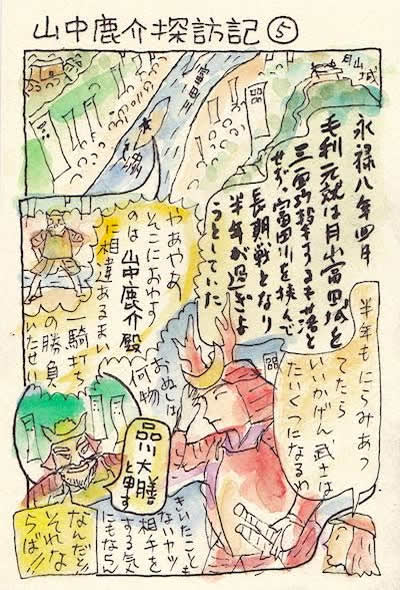 山中鹿介探訪記⑤
月山城
富田川
永禄八年四月
毛利元就は月山富田城を
三面攻撃するも落と
せず、富田川を挟んで
長期戦となり
半年が過ぎよ
うとしていた
半年もにらみあっ
てたら
いいかげん武士は
たいくつになるわ
やあやあ
そこにおわす
のは山中鹿介殿
に相違あるまい
一騎打ち
の勝負
いたせい
おぬしは
何物
品川大膳
と申す
きいたことも
ないヤツ
相手を
する気
にもならん
なんだと!!
それな
らば!!